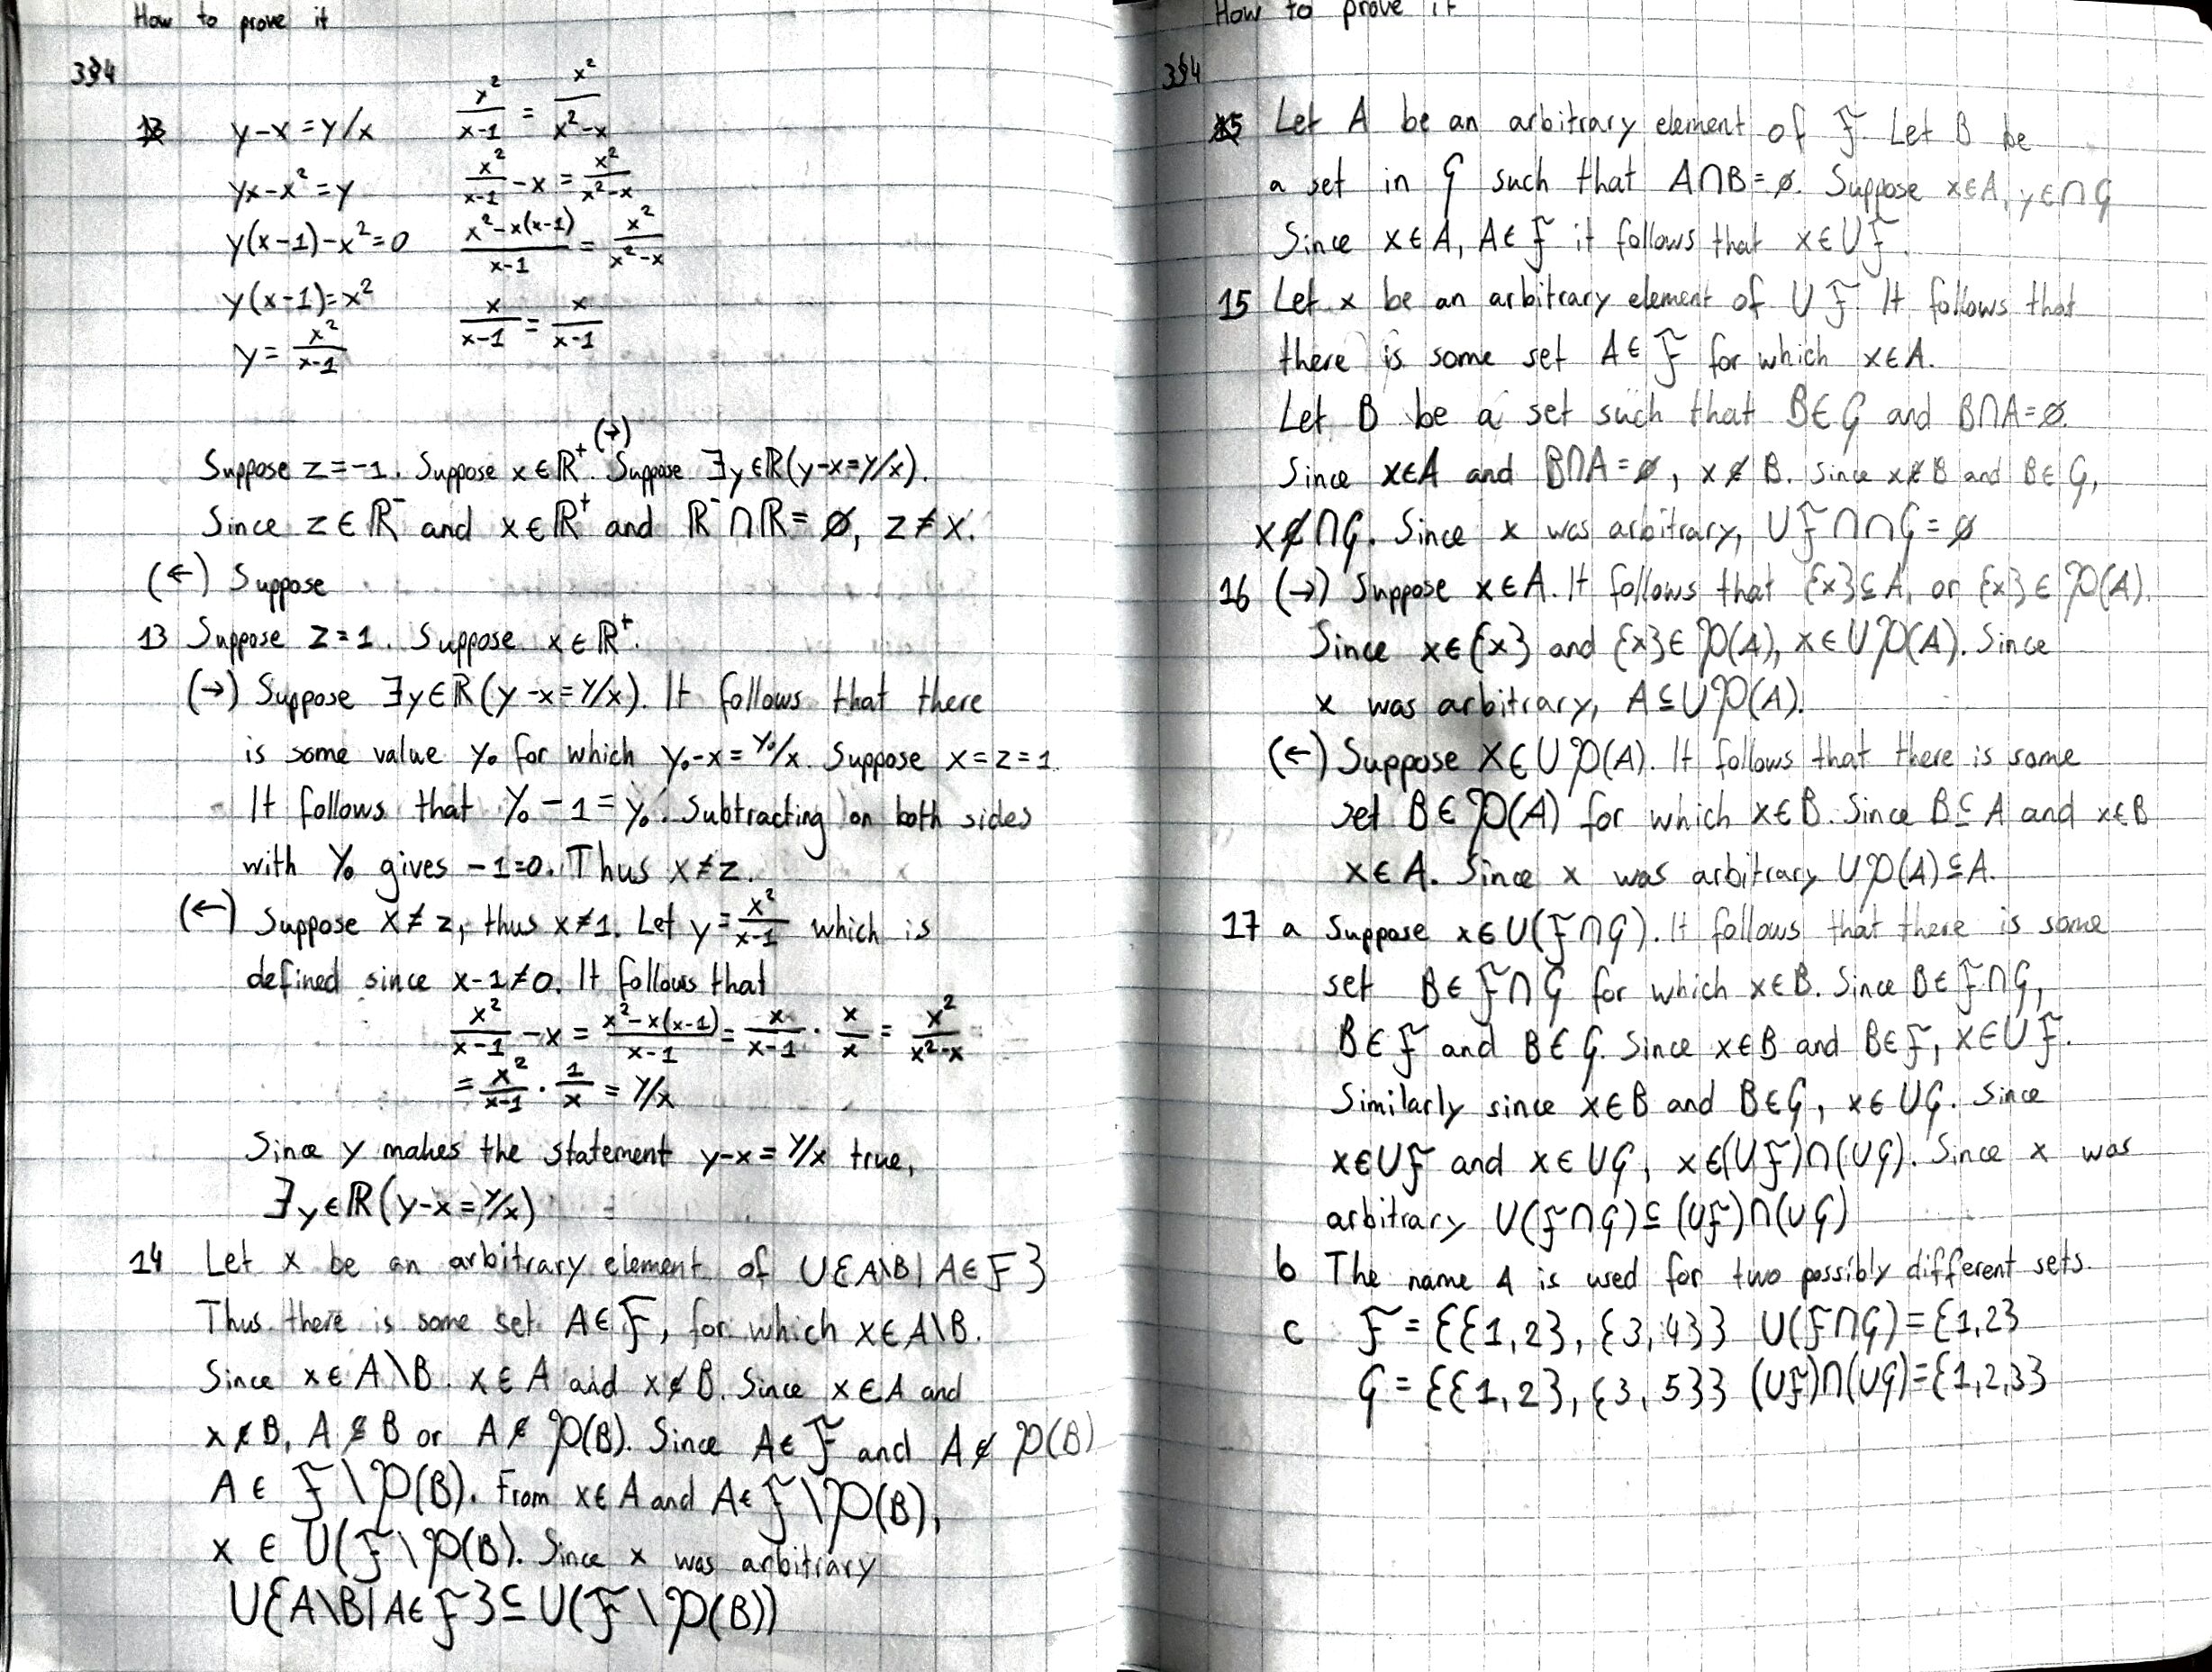 How to prove it
3§4
13 y-x=y/x
yx-x²=y
y(x-1)-x²=0
y(x-1)=x²
y=x²/(x-1)
x²/(x-1) = x²/(x²-x)
x²/(x-1) -x = x²/(x²-x)
(x²-x(x-1))/(x-1) = x²/(x²-x)
x/(x-1) = x/(x-1)
Suppose z=-1. Suppose x∈ℝ⁺. (→) Suppose ∃y∈ℝ(y-x=y/x).
Since z∈ℝ⁻ and x∈ℝ⁺ and ℝ⁻∩ℝ=∅, z≠x.
(←) Suppose
13 Suppose z=1. Suppose x∈ℝ⁺.
(→) Suppose ∃y∈ℝ(y-x=y/x). It follows that there
is some value y₀ for which y₀-x=y₀/x. Suppose x=z=1.
It follows that y₀-1=y₀. Subtracting on both sides
with y₀ gives -1=0. Thus x≠z.
(←) Suppose x≠z, thus x≠1. Let y=x²/(x-1) which is
defined since x-1≠0. It follows that
x²/(x-1) -x = (x²-x(x-1))/(x-1) = x/(x-1) · x/x = x²/(x²-x)
= x²/(x-1) · 1/x = y/x
Since y makes the statement y-x=y/x true,
∃y∈ℝ(y-x=y/x)
14 Let x be an arbitrary element of ∪{A\B|A∈F}
Thus there is some set A∈F, for which x∈A\B.
Since x∈A\B. x∈A and x∉B. Since x∈A and
x∉B, A⊈B or A∉P(B). Since A∈F and A∉P(B)
A∈F\P(B). From x∈A and A∈F\P(B),
x∈∪(F\P(B). Since x was arbitrary
∪{A\B|A∈F}⊆∪(F\P(B))
How to prove it
3§4
15 Let A be an arbitrary element of F. Let B be
a set in G such that A∩B=∅. Suppose x∈A, y∈∩G
Since x∈A, A∈F it follows that x∈∪F.
15 Let x be an arbitrary element of ∪F. It follows that
there is some set A∈F for which x∈A.
Let B be a set such that B∈G and B∩A=∅.
Since x∈A and B∩A=∅, x∉B. Since x∉B and B∈G,
x∉∩G. Since x was arbitrary, ∪F∩∩G=∅
16 (→) Suppose x∈A. It follows that {x}⊆A, or {x}∈P(A).
Since x∈{x} and {x}∈P(A), x∈∪P(A). Since
x was arbitrary, A⊆∪P(A).
(←) Suppose x∈∪P(A). It follows that there is some
set B∈P(A) for which x∈B. Since B⊆A and x∈B
x∈A. Since x was arbitrary ∪P(A)⊆A.
17 a Suppose x∈∪(F∩G). It follows that there is some
set B∈F∩G for which x∈B. Since B∈F∩G,
B∈F and B∈G. Since x∈B and B∈F, x∈∪F.
Similarly since x∈B and B∈G, x∈∪G. Since
x∈∪F and x∈∪G, x∈(∪F)∩(∪G). Since x was
arbitrary ∪(F∩G)⊆(∪F)∩(∪G)
b The name A is used for two possibly different sets.
c F={{1,2},{3,4}} ∪(F∩G)={1,2}
G={{1,2},{3,5}} (∪F)∩(∪G)={1,2,3}